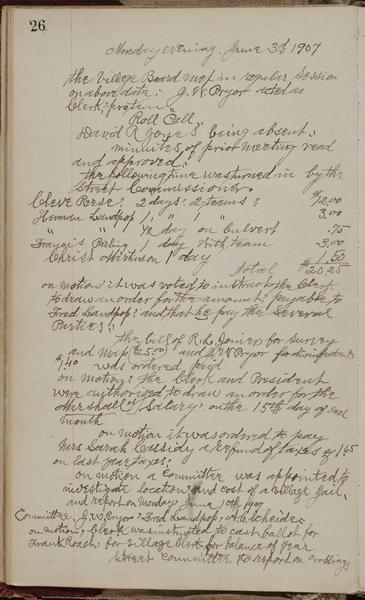 26
Monday evening. June 3d 1907
the Village Board met in regular Session
on above date: J. W. Pryor acted as
Clerk protem
Roll Call
David R Joyes being absent.
minutes of prior meeting read
and approved.
the following time was turned in by the
Street Commissioner.
Cleve Reese? 2 days? 2 teams? $12.00
Herman Landpop 1 " 1 " 3.00
" " 1/2 day on Culvert .75
Francis Paling 1 day with team 3.00
Christ 1 day 1.50
total $20.25
on motion it was voted to instruct the Clerk
to draw an order for the amount? payable to
Fred Landpop? and that he pay the Several
Parties?
the bill of R. L. Joiner for Survey
and Map $25.00 and J. W. Pryor for
$1.40 was ordered paid
on motion? the Clerk and President
were authorized to draw an order for the
Marshall Salary on the 15th day of each
month
on motion it was ordered to pay
Mrs Sarah Cassidy a refund of taxes of 1.65
on last year taxes.
on motion a Committee was appointed to
investigate location and cost of a village Jail
and report on Monday June 10th 1907
Committee, J. W. Pryor? Fred Landpop, A. C. Scheide
on motion, Clerk was instructed to cast ballot for
Frank Roach for village Clerk for balance of year
Street Committee to report on Crossings